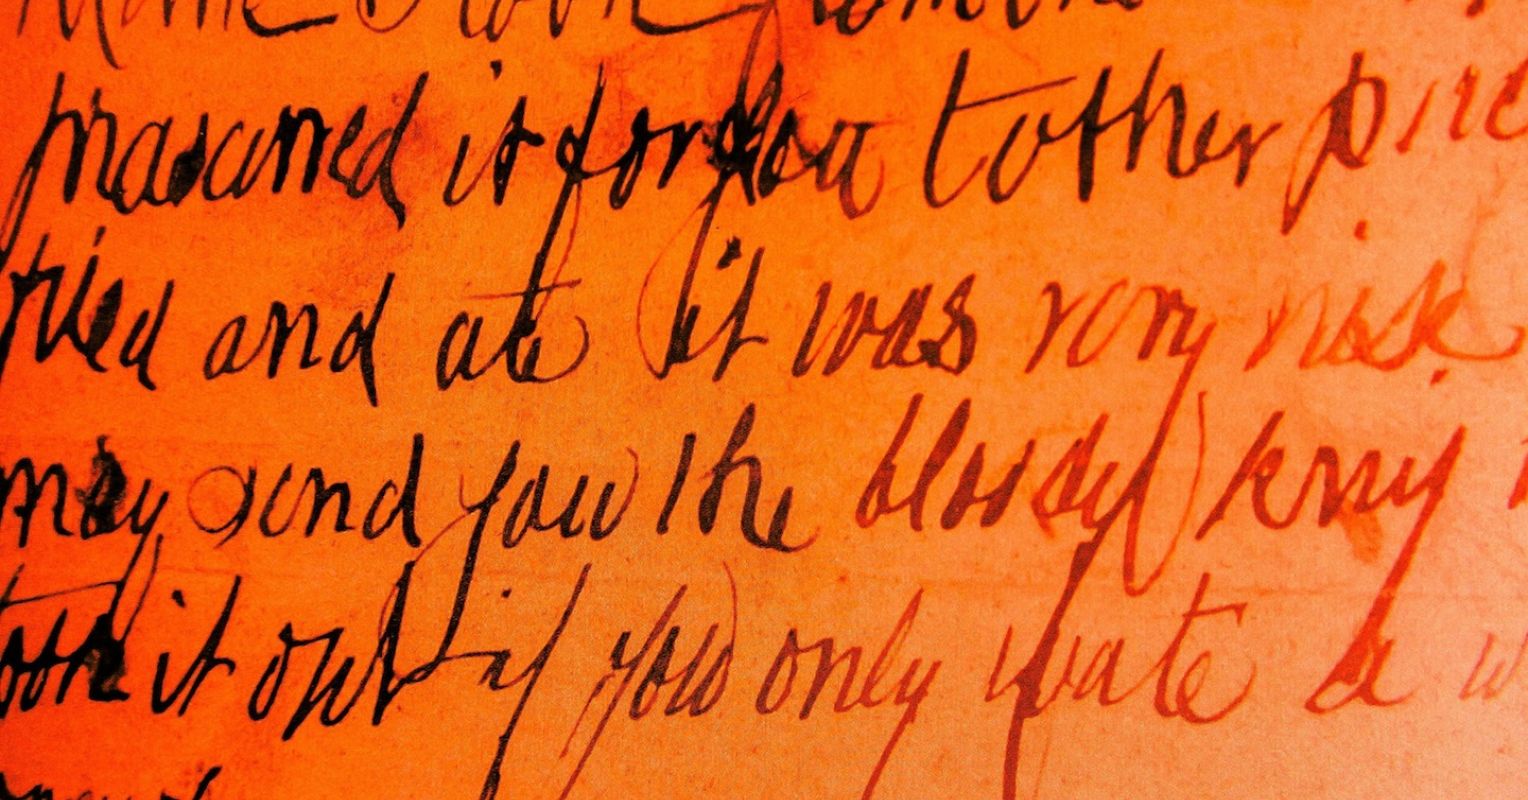 I took from one
prasarved it for you tother piec
fried and ate it was very nise
may send you the bloody knif
took it out if you only wate a